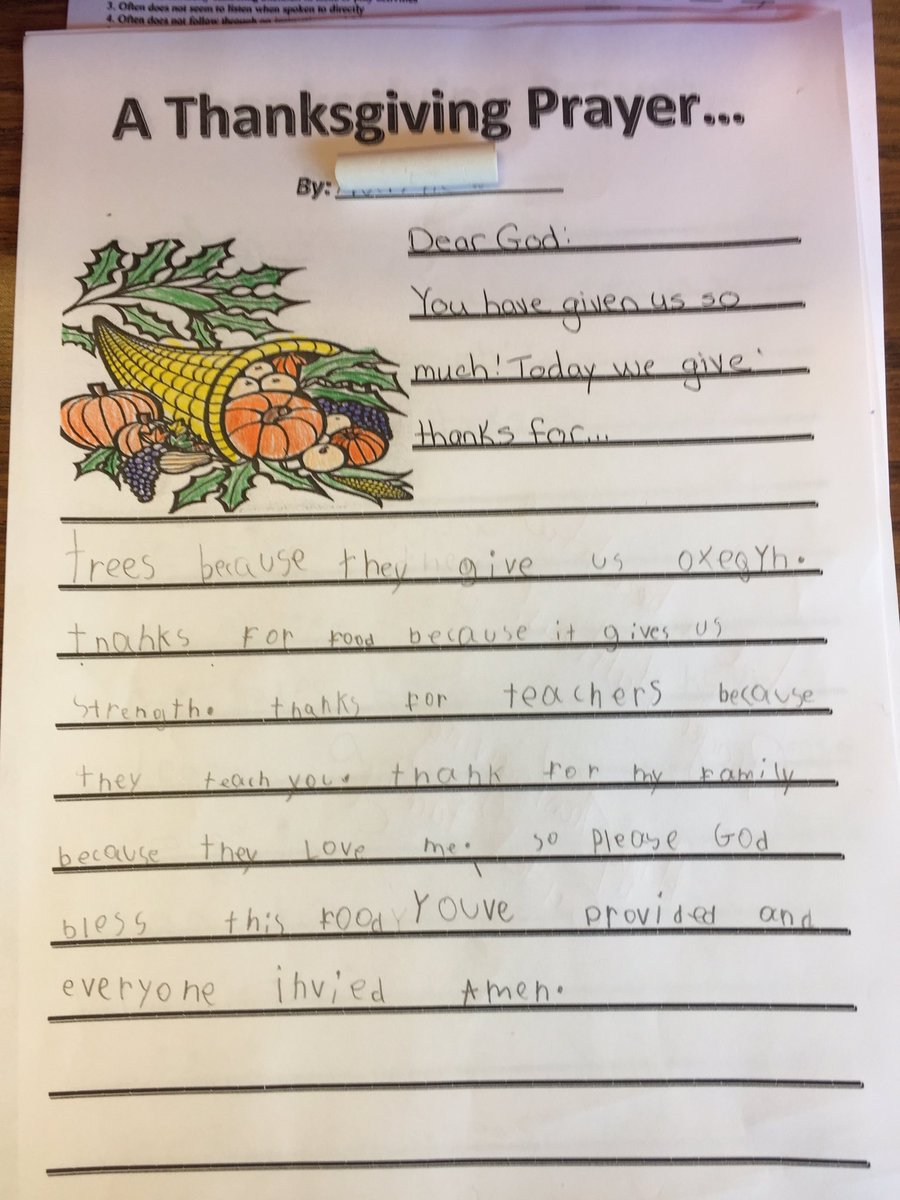 3. Often does not seem to listen when spoken to directly
4. Often does not follow through on
A Thanksgiving Prayer...
By:
Dear God:
You have given us so
much! Today we give
thanks for...
trees because they give us oxegyh.
tnahks For food because it gives us
strength. thanks for teachers because
they teach you. thank for my family
because they Love me. so please God
bless this food Youve provided and
everyone invied Amen.